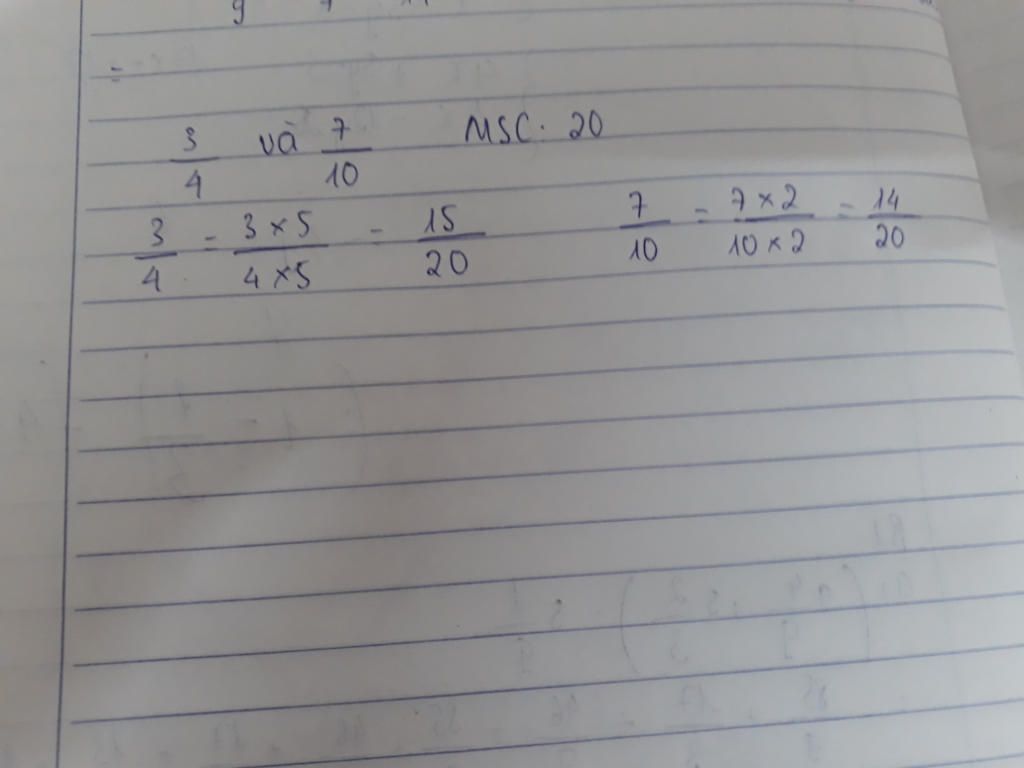 =
3/4 và 7/10 MSC. 20
3/4 = 3 x 5 / 4 x 5 = 15/20 7/10 = 7 x 2 / 10 x 2 = 14/20